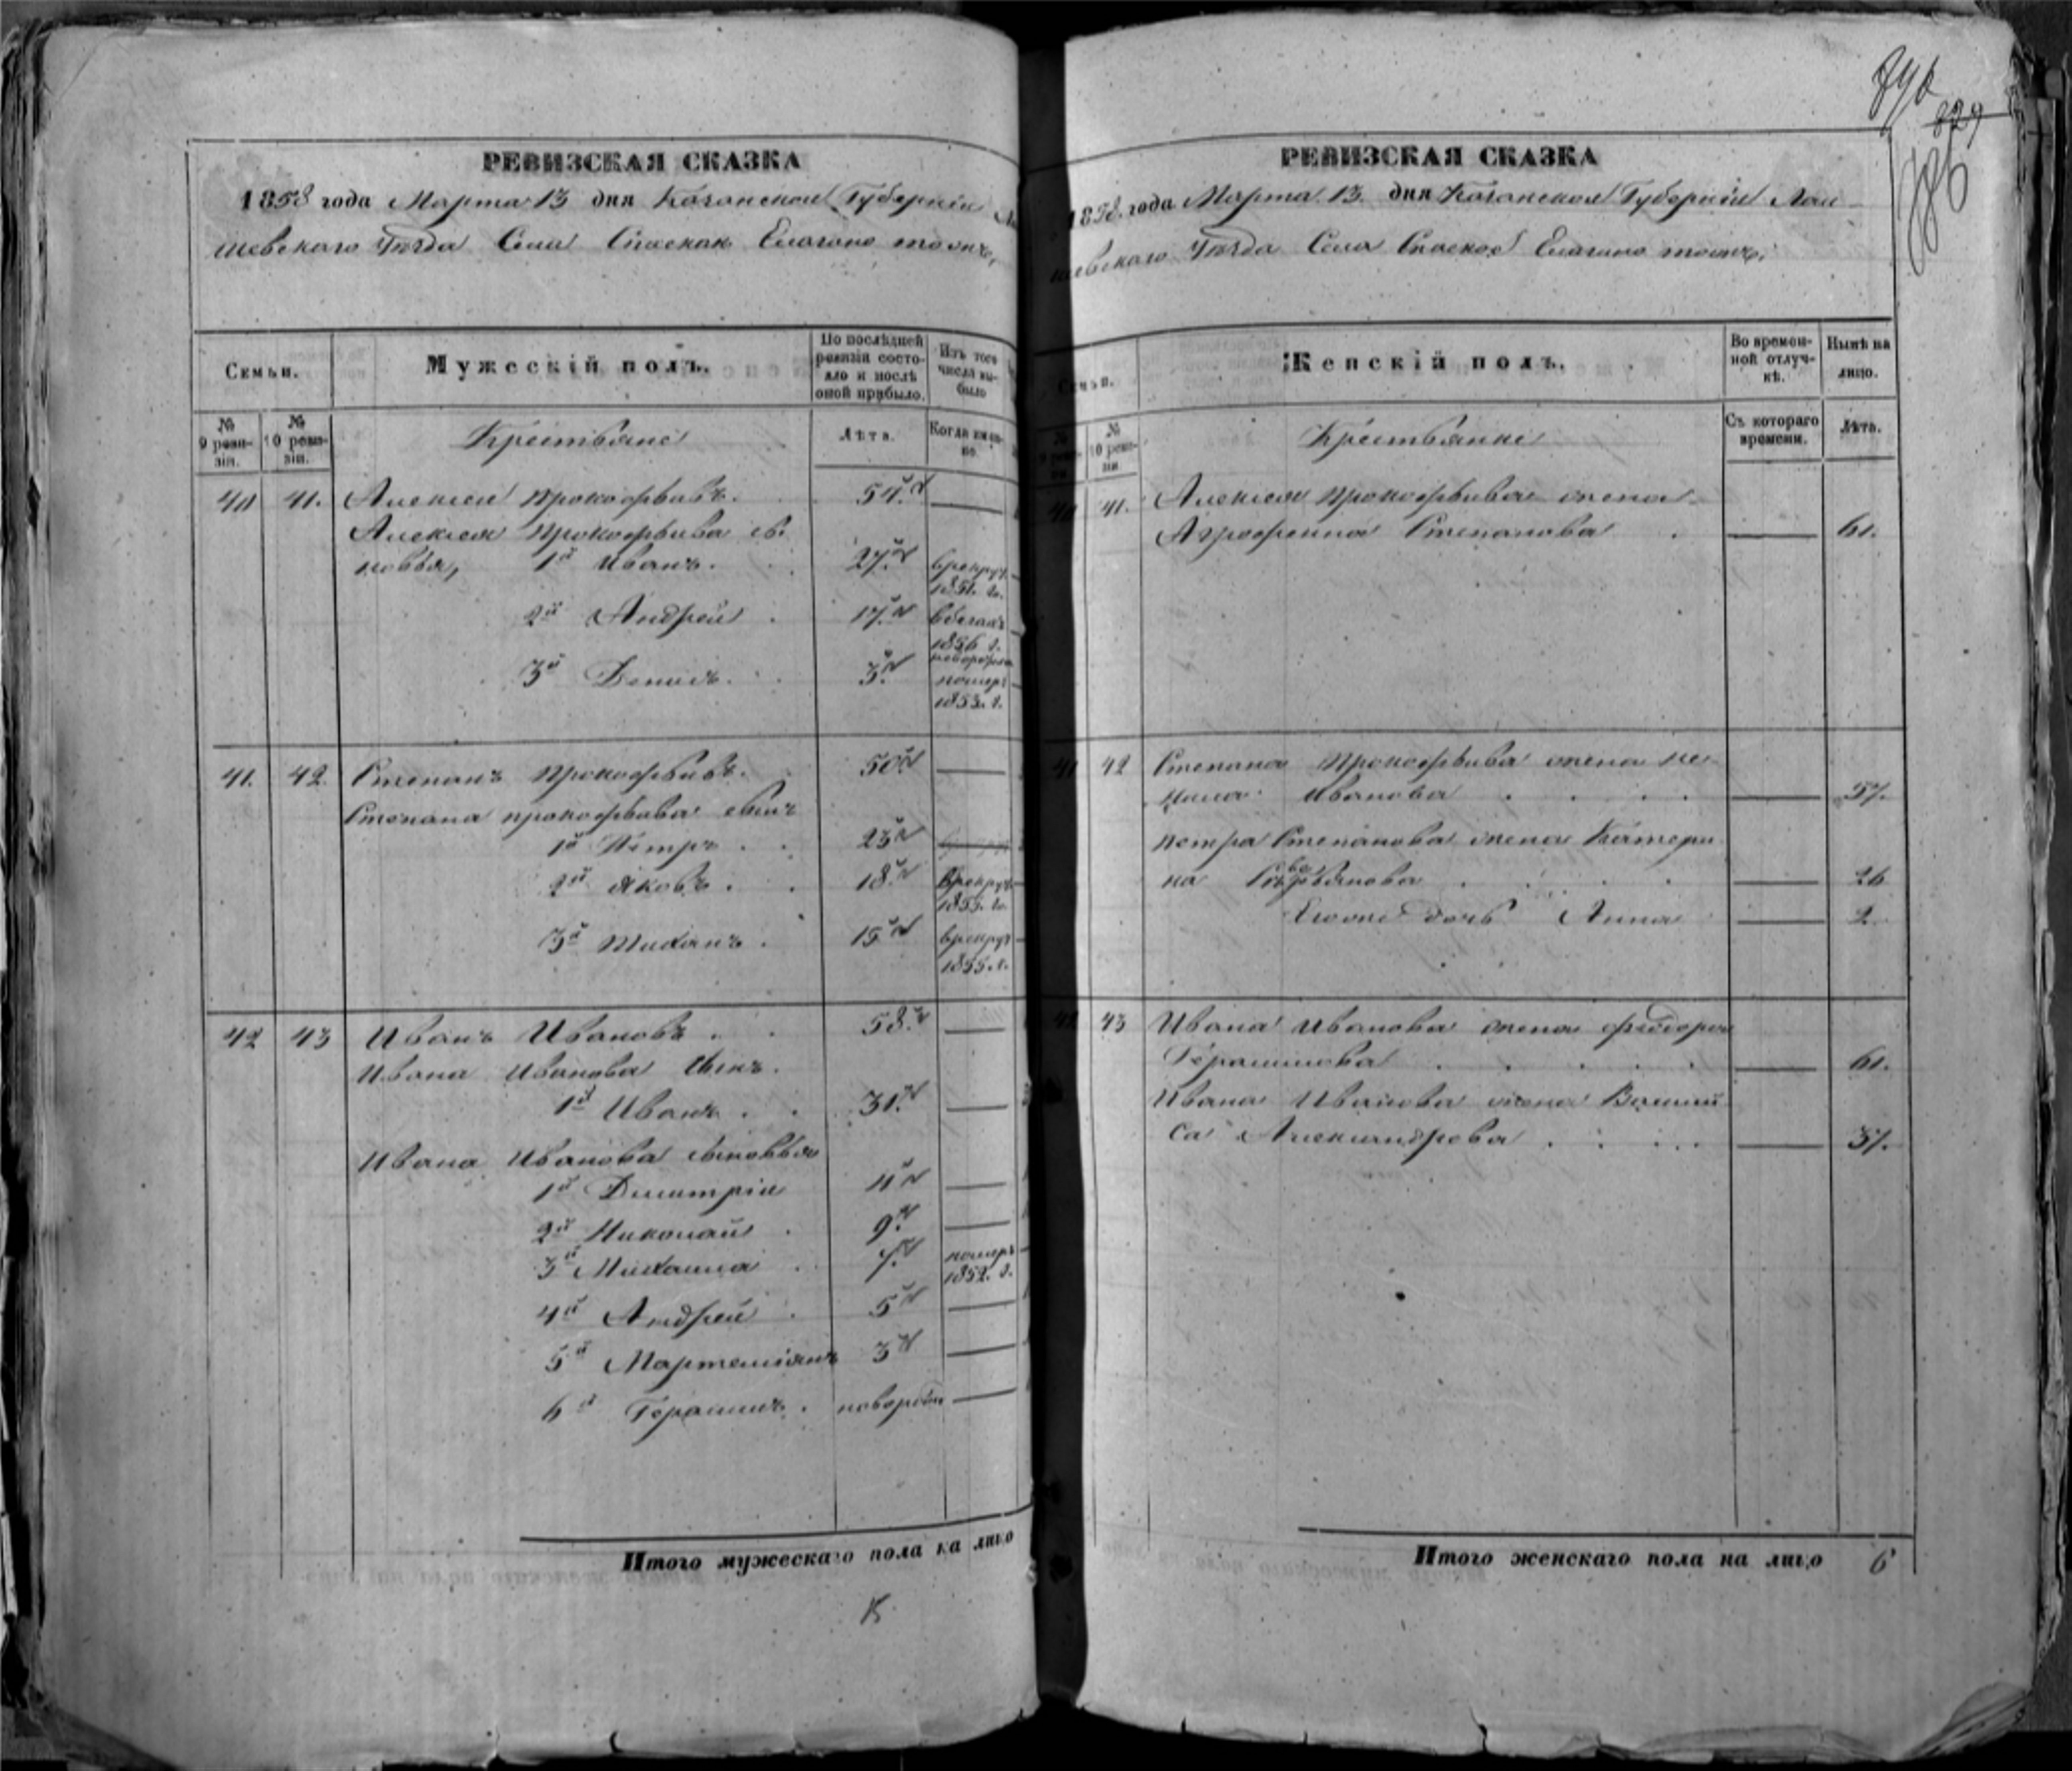 РЕВИЗСКАЯ СКАЗКА
1858 года Марта 13 дня Казанской Губерніи
шевскаго Уѣзда Села Спаское Елагино тожъ,
Семьи.
Мужескій полъ.
По послѣдней ревизіи состояло и послѣ оной прибыло.
Изъ того числа выбыло
№ 9 ревизіи.
№ 10 ревизіи.
Крестьяне
Лѣта.
Когда именно.
40 41. Алексей Прокофьевъ. 54.
Алексея Прокофьева сы
новья, 1й Иванъ. 27. врекрут 1851. г.
2й Андрей 17. вбегахъ 1856 г.
3й Денисъ. 3. померъ 1853. г.
41. 42. Степанъ Прокофьевъ. 50
Степана прокофьева сынъ
1й Петръ 23
2й Яковъ 18. врекрут 1855. г.
3й 15 врекрут 1855. г.
42 43 Иванъ Ивановъ 58.
Ивана Иванова сынъ.
1й Иванъ 31.
Ивана Иванова сыновья
1й Димитрій 11
2й Николай 9.
3й Михаила 7. померъ 1852. г.
4й Андрей 5
5й Мартемианъ 3
6й Герасимъ новорож
Итого мужескаго пола на лицо
829
РЕВИЗСКАЯ СКАЗКА
1858. года Марта 13 дня Казанской Губерніи Лаи
шевскаго Уѣзда Села Спаское Елагино тожъ,
Семьи.
Женскій полъ.
Во временной отлучкѣ.
Нынѣ на лицо.
№ 9 ревизіи
№ 10 ревизіи
Крестьянки
Съ котораго времени.
Лѣта.
40 41. Алексея Прокофьева жена
Аграфенна Степанова 61.
41 42 Степана Прокофьева жена
Иванова 57.
петра Степанова жена Катери
на 26
Егоже дочь Анна 2
42 43 Ивана Иванова жена Федора
Герасимова 61.
Ивана Иванова жена Васили
са Александрова 37.
Итого женскаго пола на лицо 6